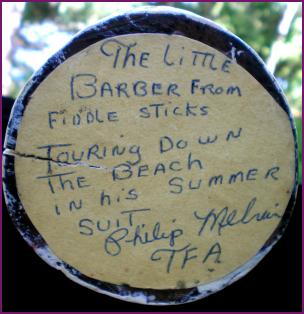 The Little
Barber From
Fiddle Sticks
Touring Down
The Beach
in his Summer
Suit
Philip
TFA